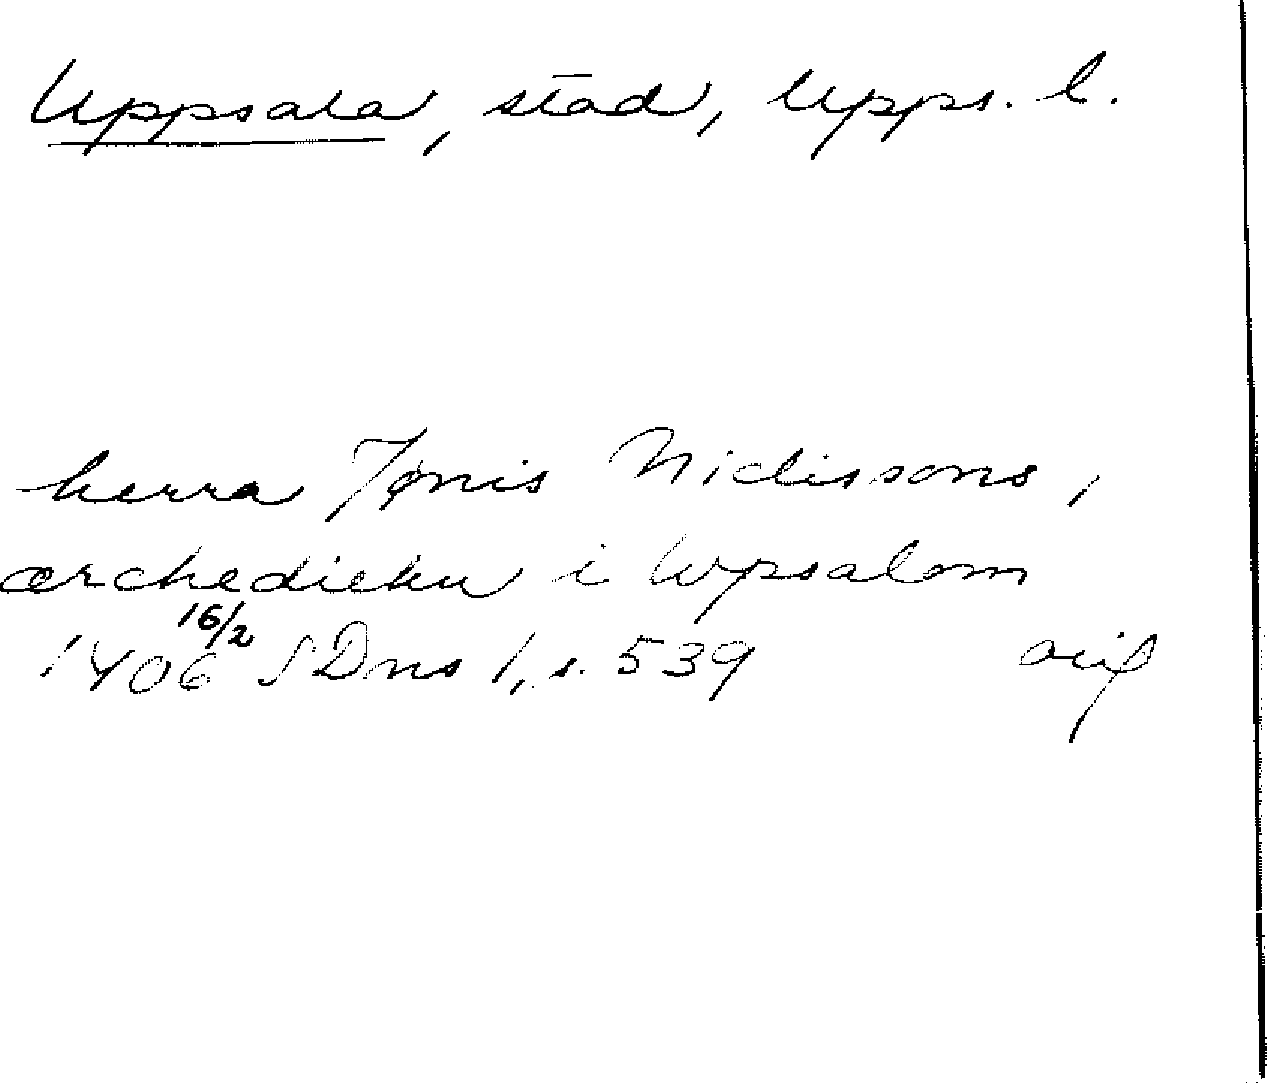 Uppsala, stad, Upps. l.
herra Jønis Nidissons,
ærchediekn i Wpsalom
1406 16/2 SDns 1, s. 539